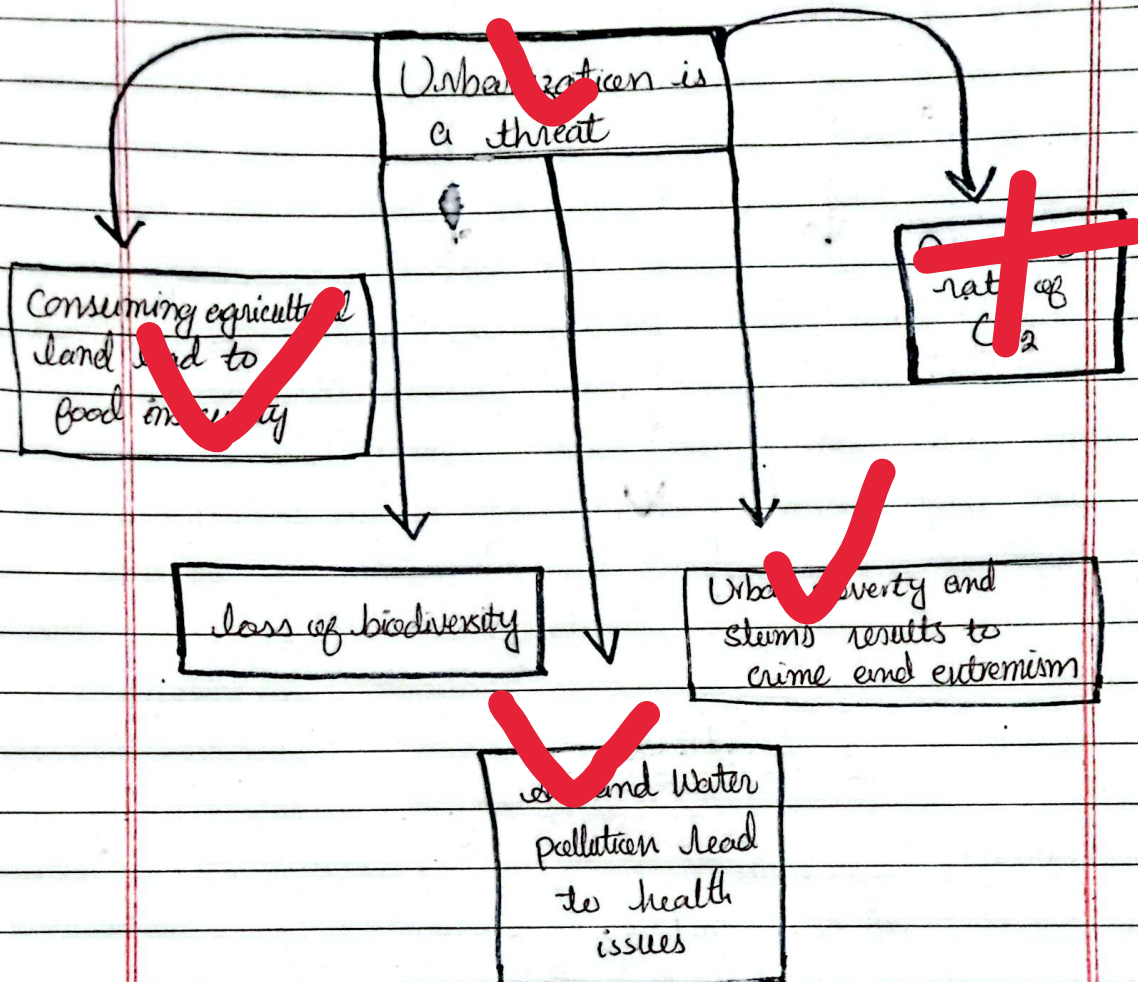 Urbanization is
a threat
Consuming agricultural
land lead to
food insecurity
rate of
CO2
loss of biodiversity
Urban poverty and
slums results to
crime and extremism
and Water
pollution lead
to health
issues